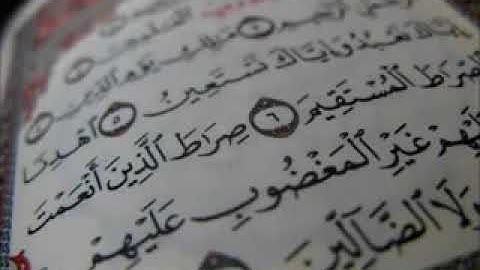 الرَّحْمَٰنِ الرَّحِيمِ ٣ مَٰلِكِ يَوْمِ الدِّينِ
إِيَّاكَ نَعْبُدُ وَإِيَّاكَ نَسْتَعِينُ ٥ اهْدِنَا
الصِّرَاطَ الْمُسْتَقِيمَ ٦ صِرَاطَ الَّذِينَ أَنْعَمْتَ
عَلَيْهِمْ غَيْرِ الْمَغْضُوبِ عَلَيْهِمْ
وَلَا الضَّالِّينَ